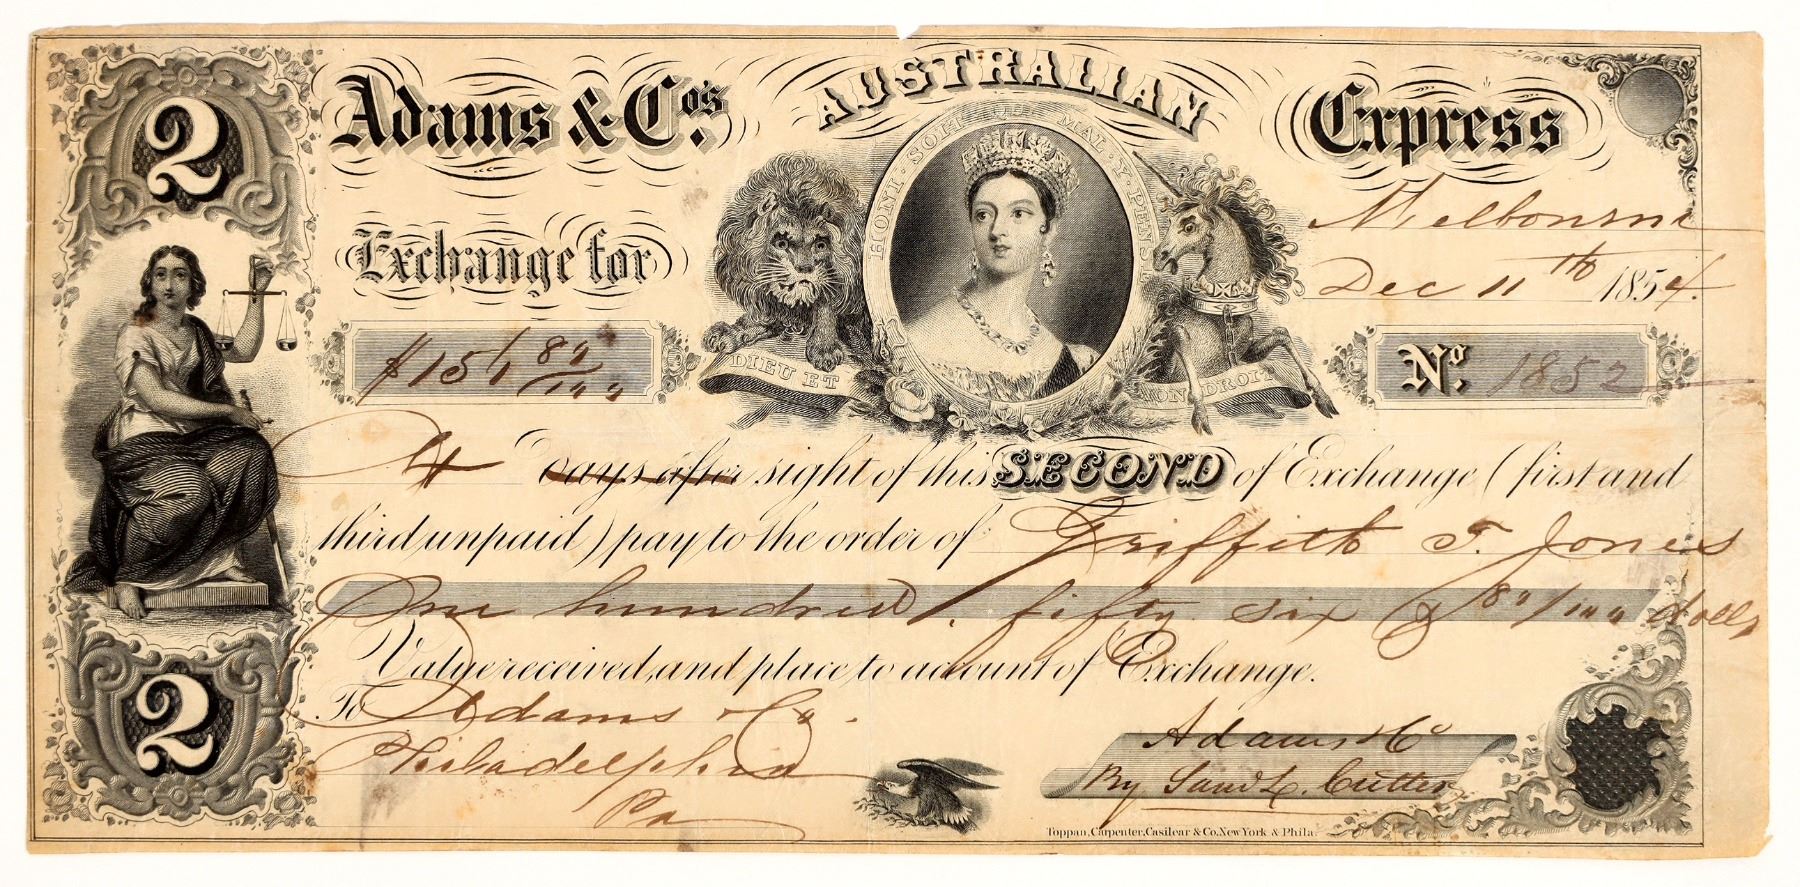 2
Adams & Cos. AUSTRALIAN Express
HONI · SOIT QUI MAL · Y · PENSE
Melbourne
Exchange for
Dec 11th 1854.
$156 80/100
DIEU ET MON DROIT
No. 1852
At days after sight of this SECOND of Exchange (first and
third unpaid) pay to the order of Griffith T. Jones
One hundred, fifty six & 80/100 dolls
Value received, and place to account of Exchange.
2
To Adams & Co.
Philadelphia
Pa
Adams & Co
By Saml L. Cutter
Toppan, Carpenter, Casilear & Co. New York & Phila.